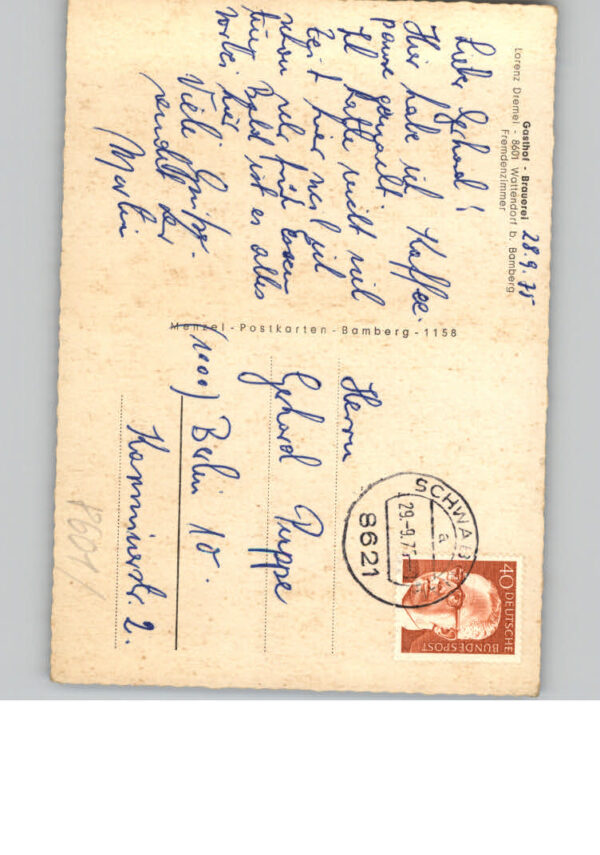 Gasthof - Brauerei
Lorenz Dremel - 8601 Wattendorf b. Bamberg
Fremdenzimmer
28.9.75
Lieber Gerhard!
Hier habe ich Kaffee-
pause gemacht.
Ich hatte nicht viel
Zeit hier weil
schon sehr früh Essen
war. Bald ist es alles
vorbei hier
Viele Grüße
sendet der
Martin
Menzel - Postkarten - Bamberg - 1158
Herrn
Gerhard Puppe
(1000) Berlin 10.
Kamminerstr. 2.
SCHWAB
a
29.-9.75
8621
40 DEUTSCHE
BUNDESPOST
8601